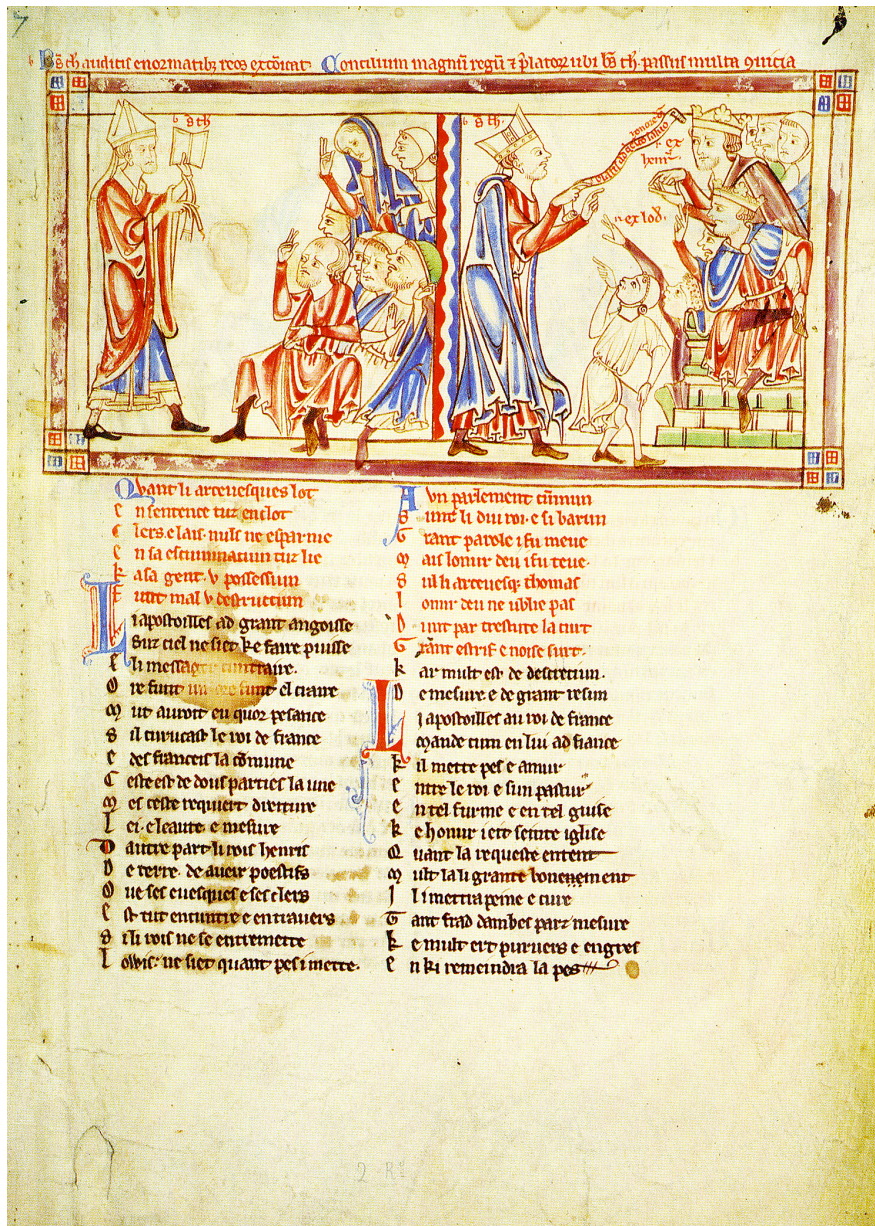 Bs th auditis enormatibz reos exco͞icat. Concilium magnu͞ regu͞ ⁊ p͞lator ubi bs th. passus multa 9uicia
b s th
b s th
honore
salvo
rex
henr
rex lod.
Quant li arceuesques lot
En sentence tuz enclot
Clers. e lais. nuls ne esparnie
En sa escuminatiun tuz lie
Ka sa gent. v possessiun
Funt mal v destructiun
Li apostoilles ad grant angoisse
Suz ciel ne siet ke faire puisse
Eli message cuntraire.
Ore funt un ore sunt el claire
Mut auroit eu quor pesance
Sil curucast le roi de france
E des franceis la co͞mune
Ceste est de dous parties la une
Mes ceste requiert dreiture
Lei. e leaute. e mesure
Dautre part li rois henris
De terre. de aueir poestifs
Oue ses euesques e ses clers
Est tut encuntre e entrauers
Si li rois ne se entremette
Lowis: ne siet quant pes i mette.
A vn parlement cu͞mun
Sunt li dui roi. e si barun
Grant parole i fu meue
Mais lonur deu i fu teue.
Sul li arceuesq thomas
Lonur deu ne ublie pas
Dunt par trestute la curt
Grant estrif e noise surt.
Kar mult est de descreciun.
De mesure. e de grant resun
Li apostoilles au roi de france
Mande cum en lui ad fiance
Kil mette pes e amur
Entre le roi e sun pastur
En tel furme e en tel guise
Ke honur i eit seinte iglise
Quant la requeste entent
Mult la li grante bonement
Il i mettra peine e cure
Tant frad dambes parz mesure
Ke mult ert puruers e engres
En ki remeindra la pes
2 R